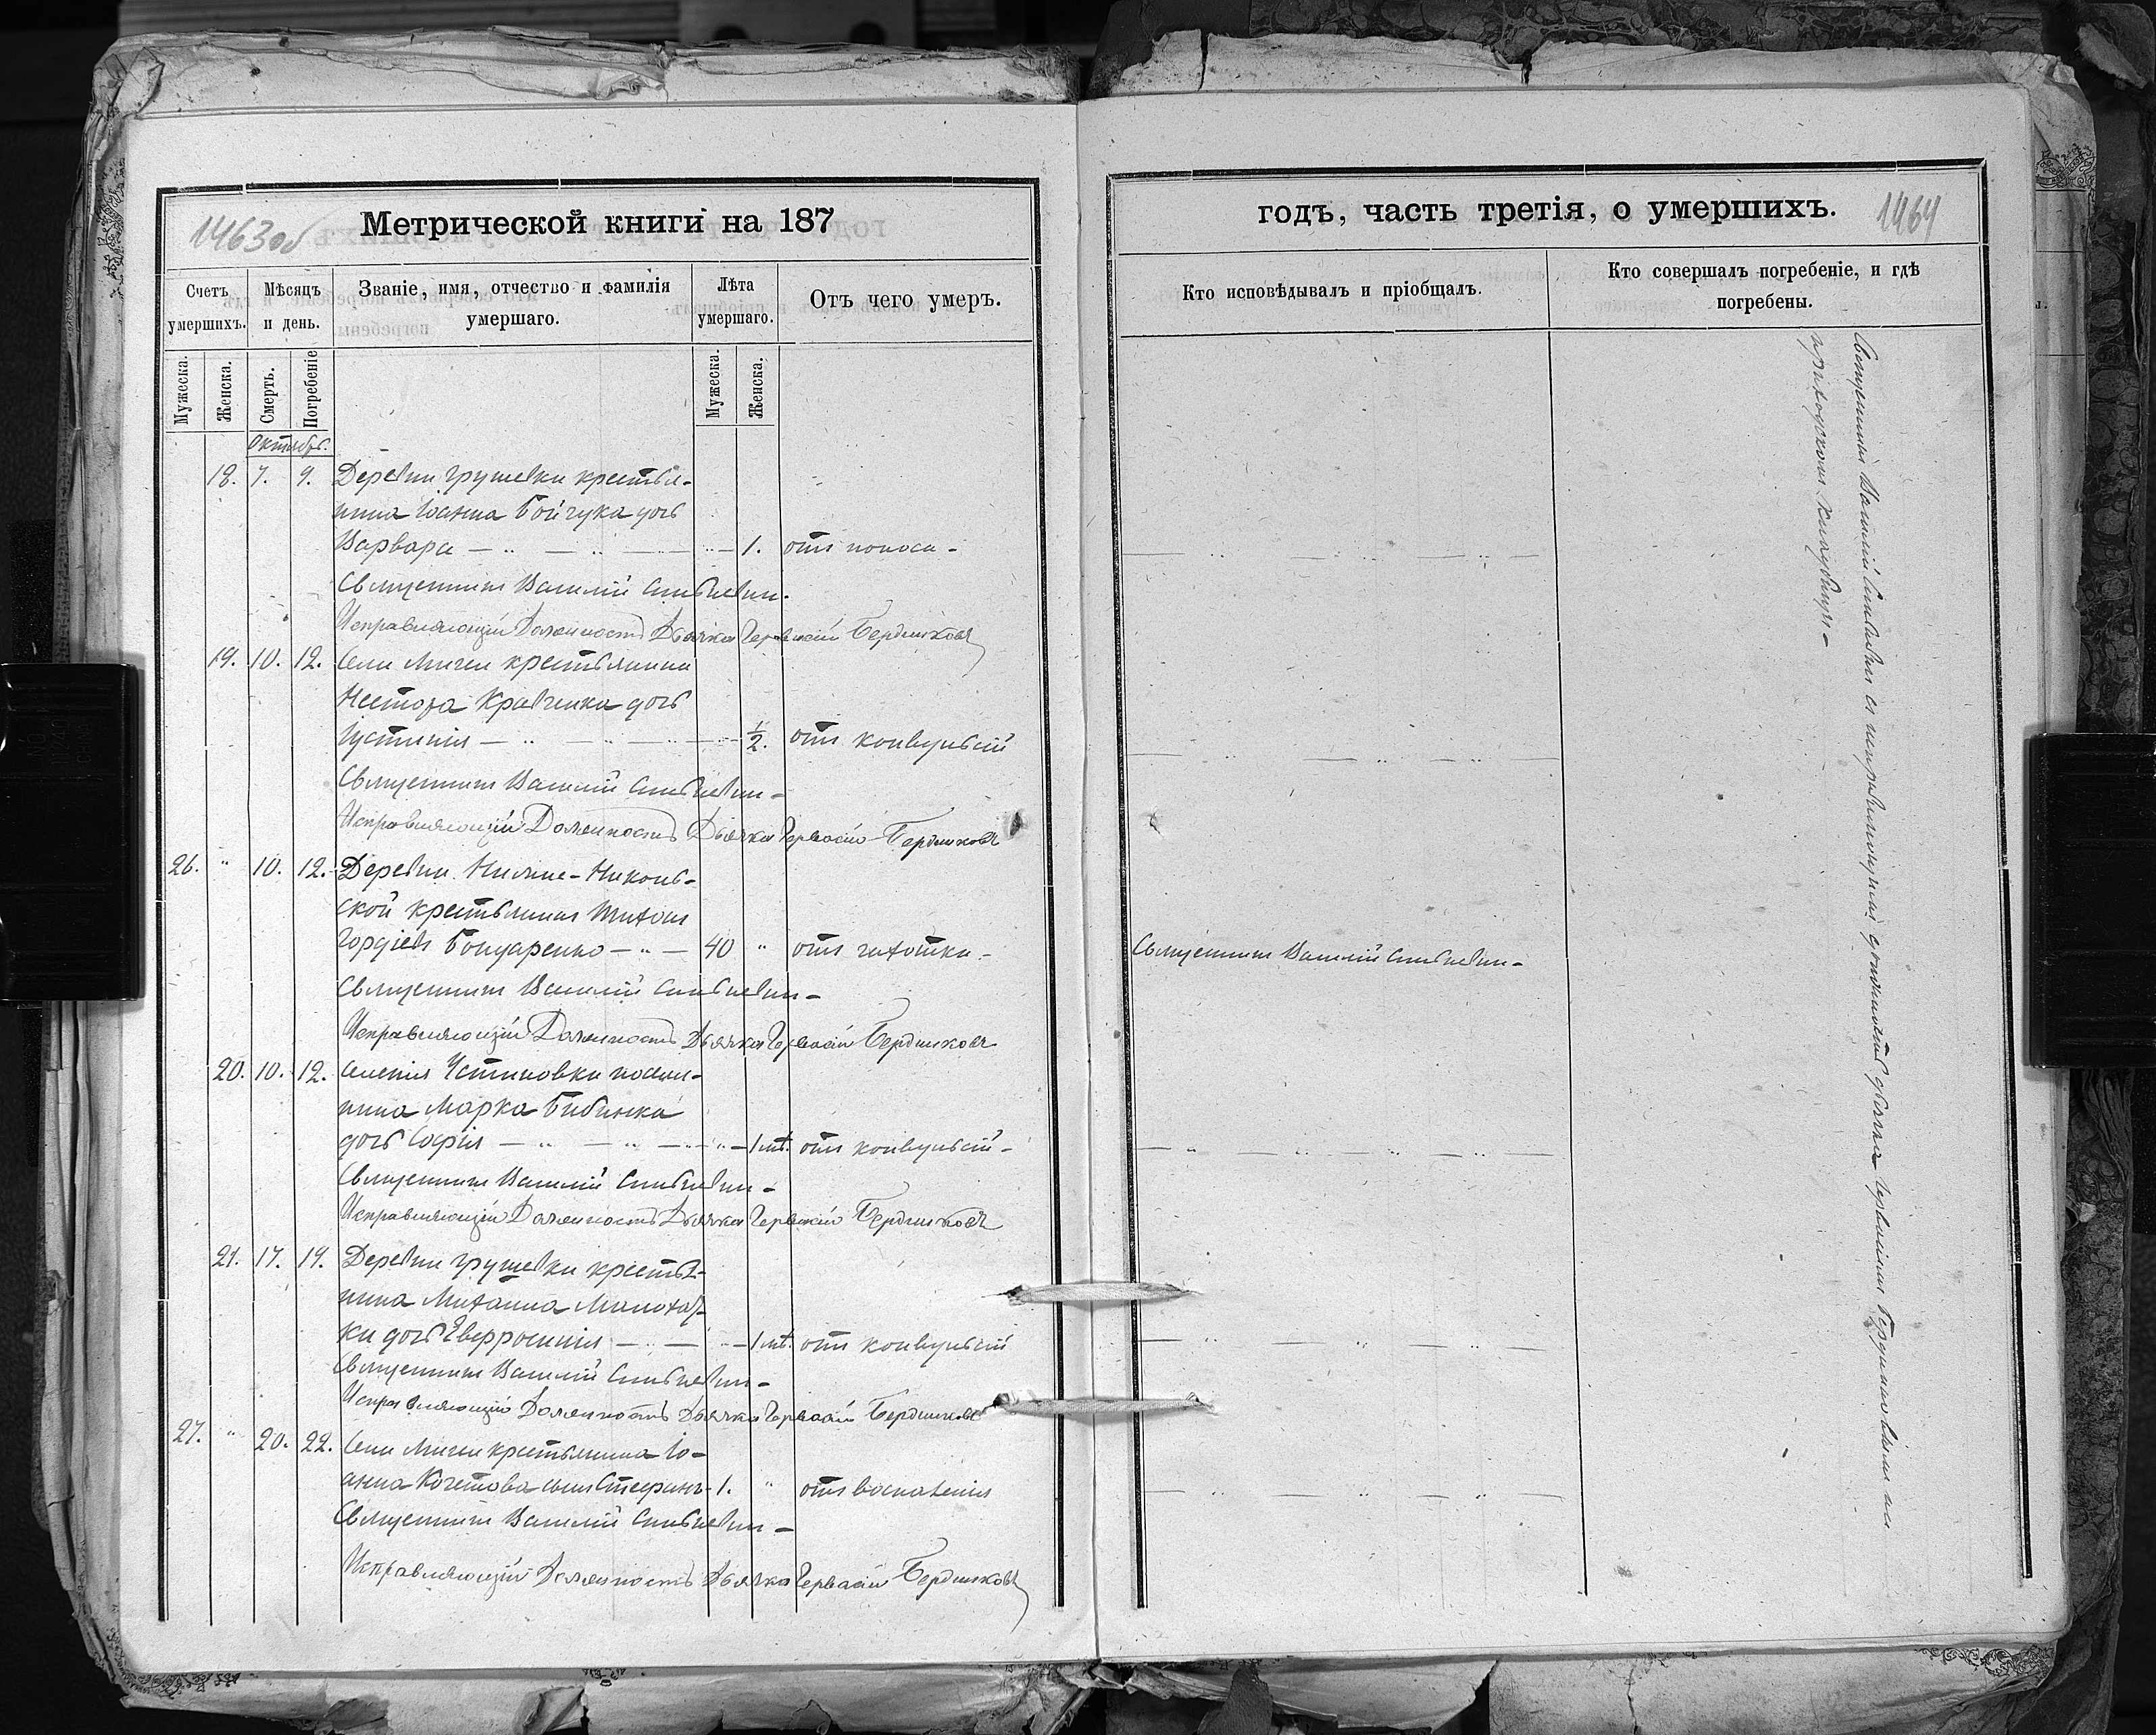 1463об
Метрической книги на 187
Счетъ умершихъ.
Мѣсяцъ и день.
Званіе, имя, отчество и фамилія умершаго.
Лѣта умершаго.
Отъ чего умеръ.
Мужеска.
Женска.
Смерть.
Погребеніе
Мужеска.
Женска.
Октябрь.
18. 7. 9. Деревни Грушевки крестья-
нина Іоанна Бойчука дочь
Варвара — " — " — " — 1. отъ поноса -
Священникъ Василій
Исправляющій Должность Дьячка Гервасій Бердниковъ
19. 10. 12. Села Мигеи крестьянина
Нестора Кравченка дочь
Іустинія — " — " — 1/2. отъ конвульсій
Священникъ Василій
Исправляющій Должность Дьячка Гервасій Бердниковъ
26. " 10. 12. Деревни Нижне-Николь-
ской крестьянинъ Тихонъ
Гордіевъ Бондаренко — " — 40 " отъ чахотки -
Священникъ Василій
Исправляющій Должность Дьячка Гервасій Бердниковъ
20. 10. 12. Селенія Устиновки поселя-
нина Марка
дочь Софія — " — " — " — 1 мѣ. отъ конвульсій -
Священникъ Василій
Исправляющій Должность Дьячка Гервасій Бердниковъ
21. 17. 19. Деревни Грушевки крестья-
нина Михаила
ки дочь Евфросинія — " — " — 1 мѣ. отъ конвульсій
Священникъ Василій
Исправляющій Должность Дьячка Гервасій Бердниковъ
27. " 20. 22. Села Мигеи крестьянина Іо-
анна Кочетова сынъ Стефанъ - 1. " отъ воспаленія
Священникъ Василій
Исправляющій Должность Дьячка Гервасій Бердниковъ
годъ, часть третія, о умершихъ.
1464
Кто исповѣдывалъ и пріобщалъ.
Кто совершалъ погребеніе, и гдѣ погребены.
Священникъ Василій
Священникъ Василій съ исправляющимъ должность дьячка Гервасіемъ Бердниковымъ на
приходскомъ кладбищѣ -